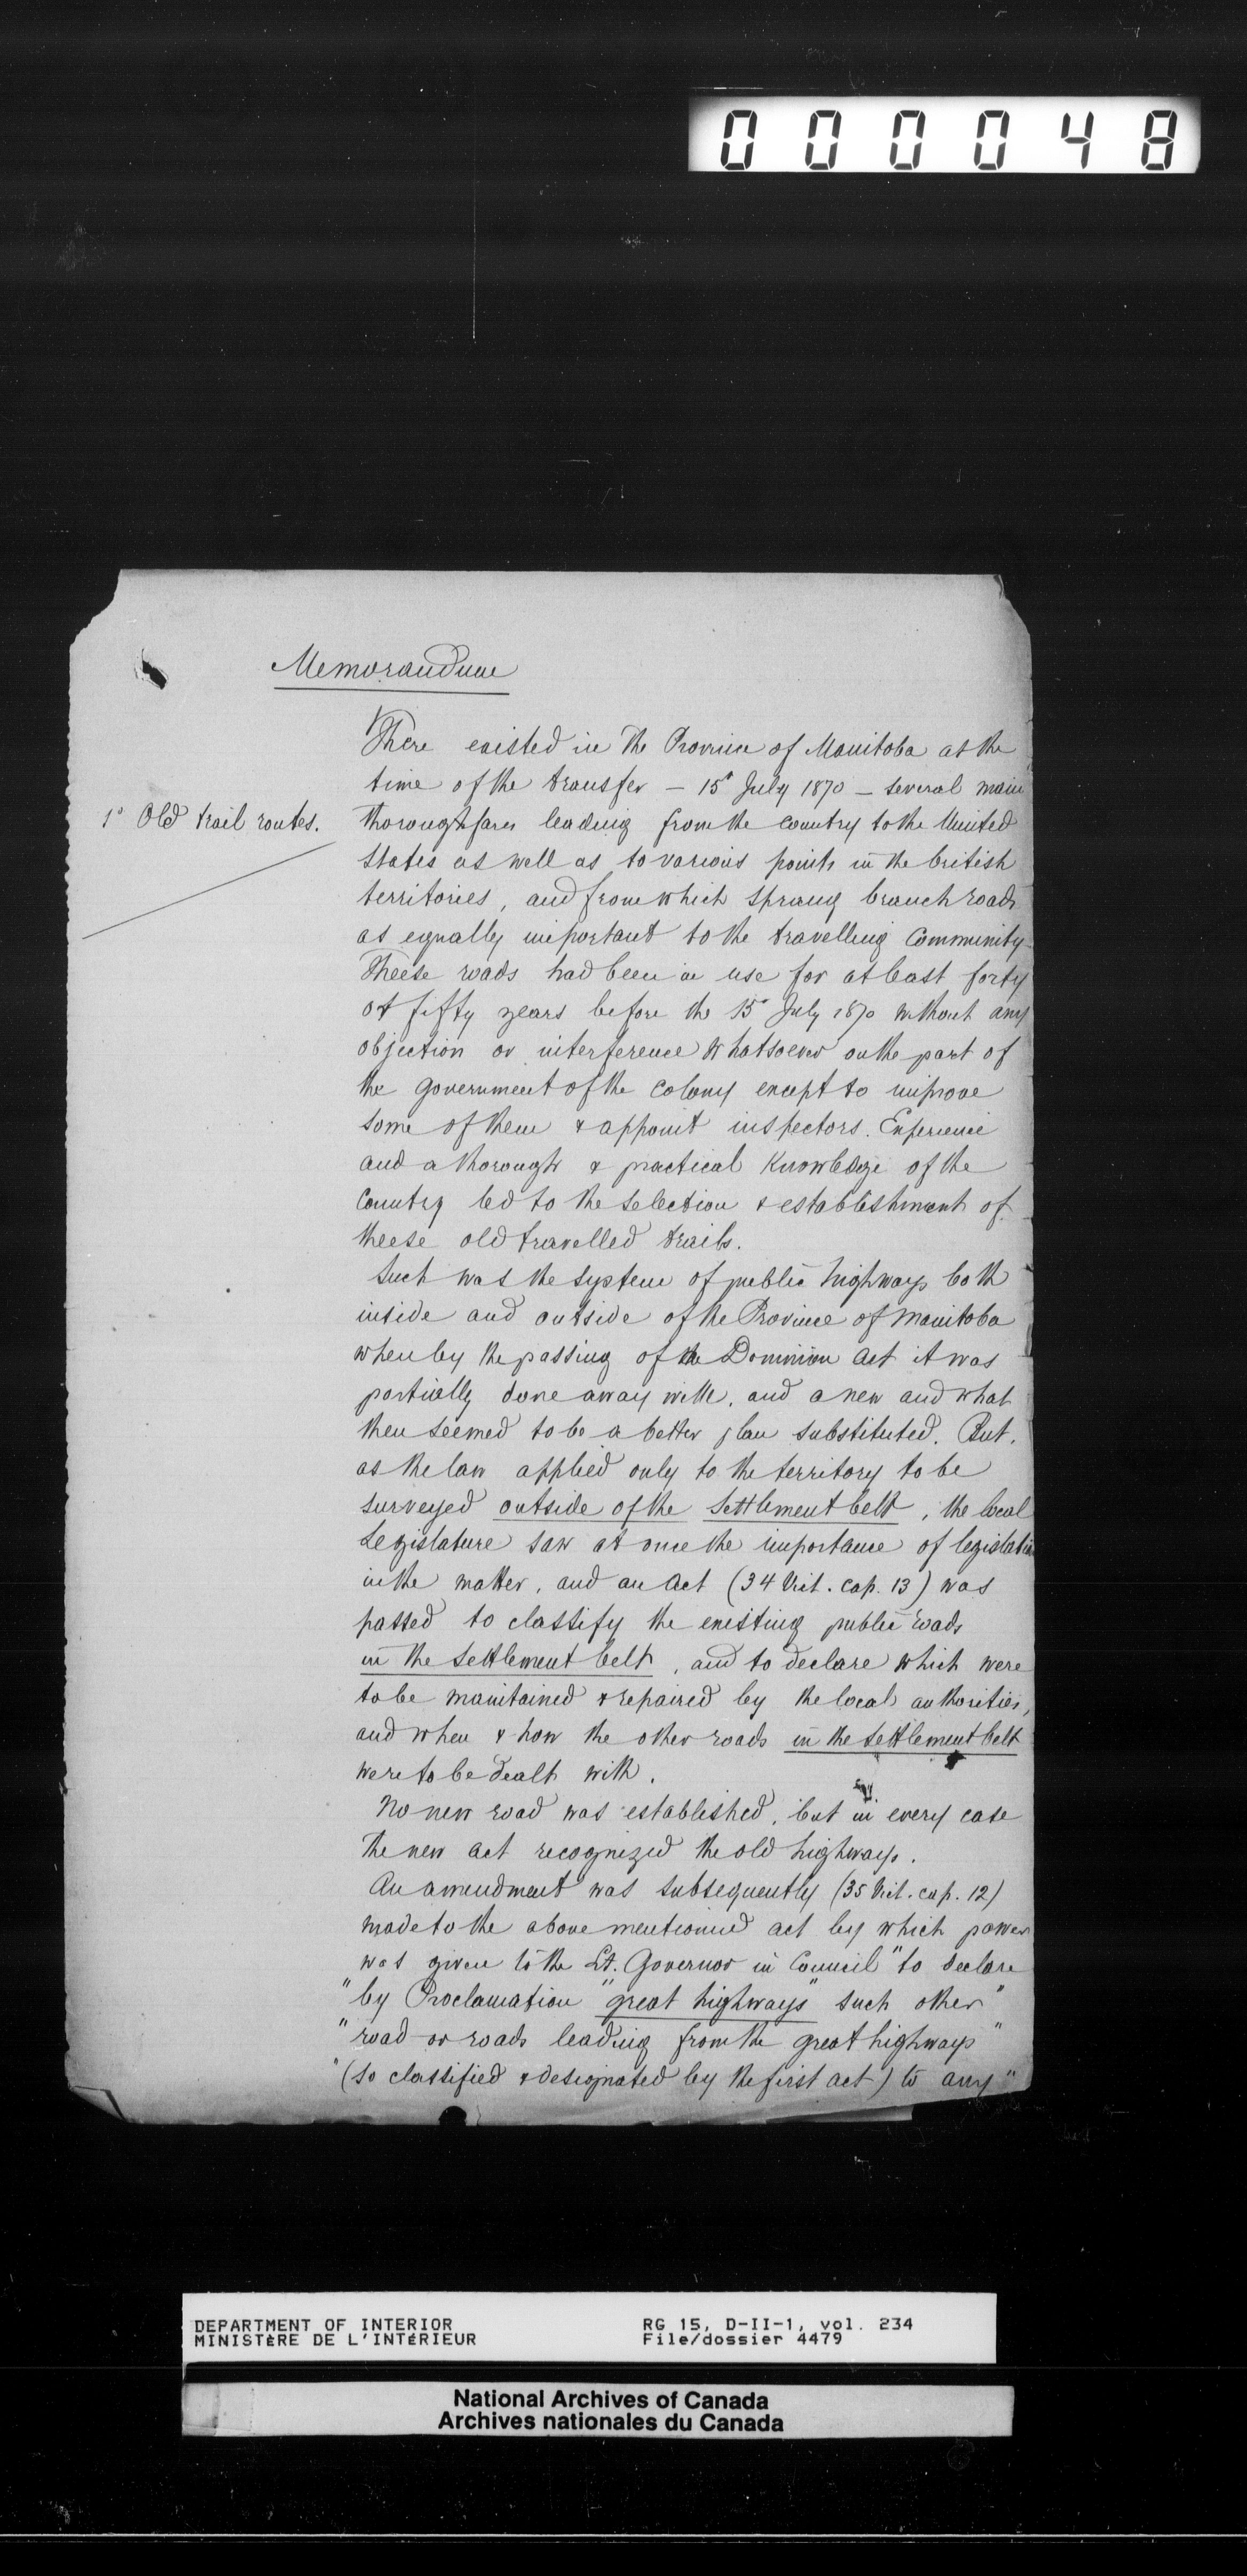 000048
Memorandum
There existed in the Province of Manitoba at the
time of the transfer — 15th July 1870 — several main
1° Old trail routes.
thoroughfares leading from the country to the United
States as well as to various points in the british
territories, and from which sprang branch roads
as equally important to the travelling community.
Theese roads had been in use for at least forty
or fifty years before the 15th July 1870 without any
objection or interference whatsoever on the part of
the government of the colony except to improve
some of them & appoint inspectors. Experience
and a thorough & practical knowledge of the
Country led to the selection & establishment of
theese old travelled trails.
Such was the system of public highways both
inside and outside of the Province of Manitoba
when by the passing of the Dominion Act it was
partially done away with, and a new and what
then seemed to be a better plan substituted. But,
as the law applied only to the territory to be
surveyed outside of the Settlement belt, the local
Legislature saw at once the importance of legislation
in the matter, and an Act (34 Vict. cap. 13) was
passed to classify the existing public roads
in the Settlement belt, and to declare which were
to be maintained & repaired by the local authorities,
and when & how the other roads in the Settlement belt
were to be dealt with.
No new road was established, but in every case
the new act recognized the old highways.
An amendment was subsequently (35 Vict. cap. 12)
made to the above mentioned act by which power
was given to the Lt. Governor in Council "to declare
"by Proclamation "great highways" such other"
"road or roads leading from the great highways"
"(so classified & designated by the first act) to any"
DEPARTMENT OF INTERIOR
MINISTÈRE DE L'INTÉRIEUR
RG 15, D-II-1, vol. 234
File/dossier 4479
National Archives of Canada
Archives nationales du Canada